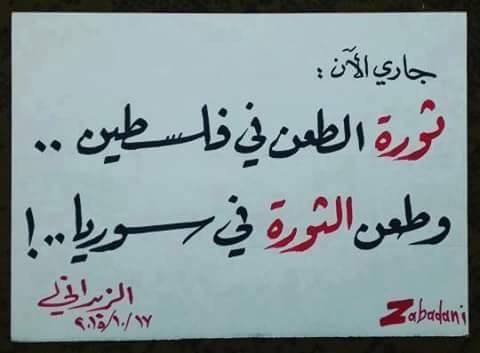 جاري الآن :
ثورة الطعن في فلسطين ..
وطعن الثورة في سوريا ..!
الزبداني
٢٠١٥/١٠/١٧
Zabadani